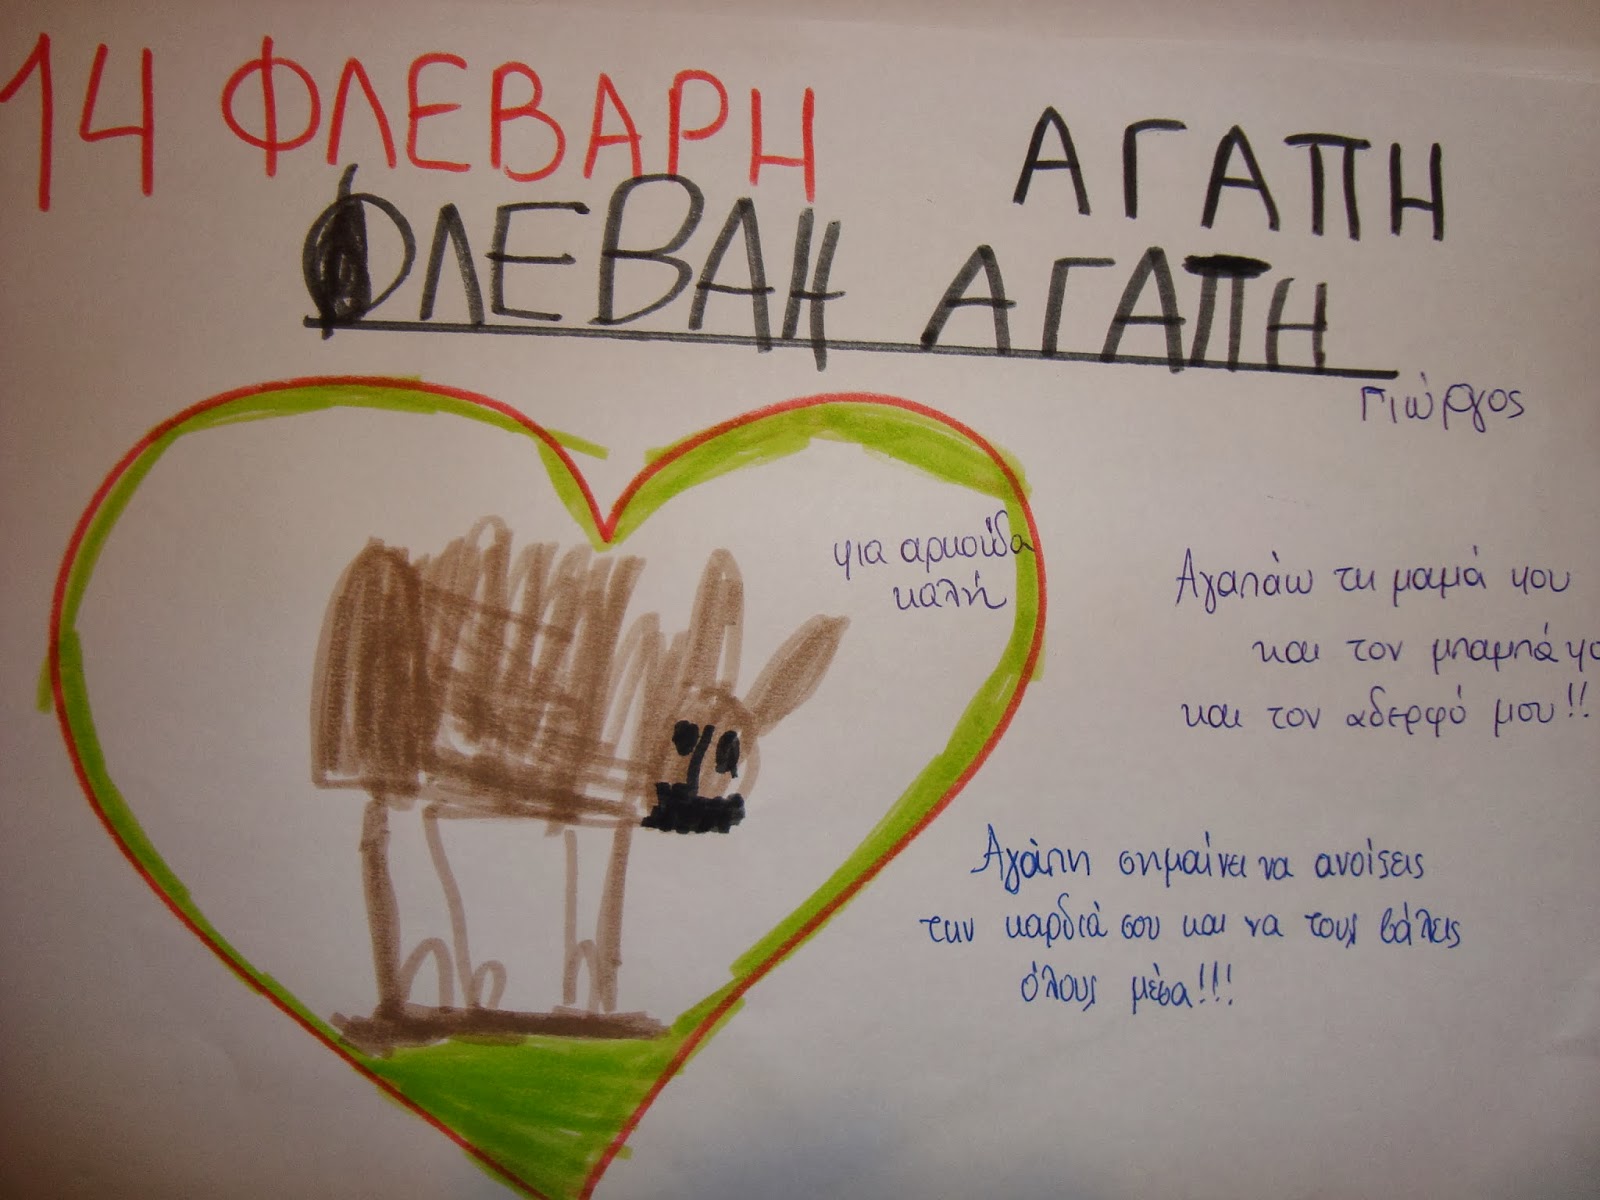 14 ΦΛΕΒΑΡΗ ΑΓΑΠΗ
ΦΛΕΒΑΗ ΑΓΑΠΗ
Γιώργος
μια αρκούδα
καλή
Αγαπάω τη μαμά μου
και τον μπαμπά μο
και τον αδερφό μου!!
Αγάπη σημαίνει να ανοίξεις
την καρδιά σου και να τους βάλεις
όλους μέσα!!!